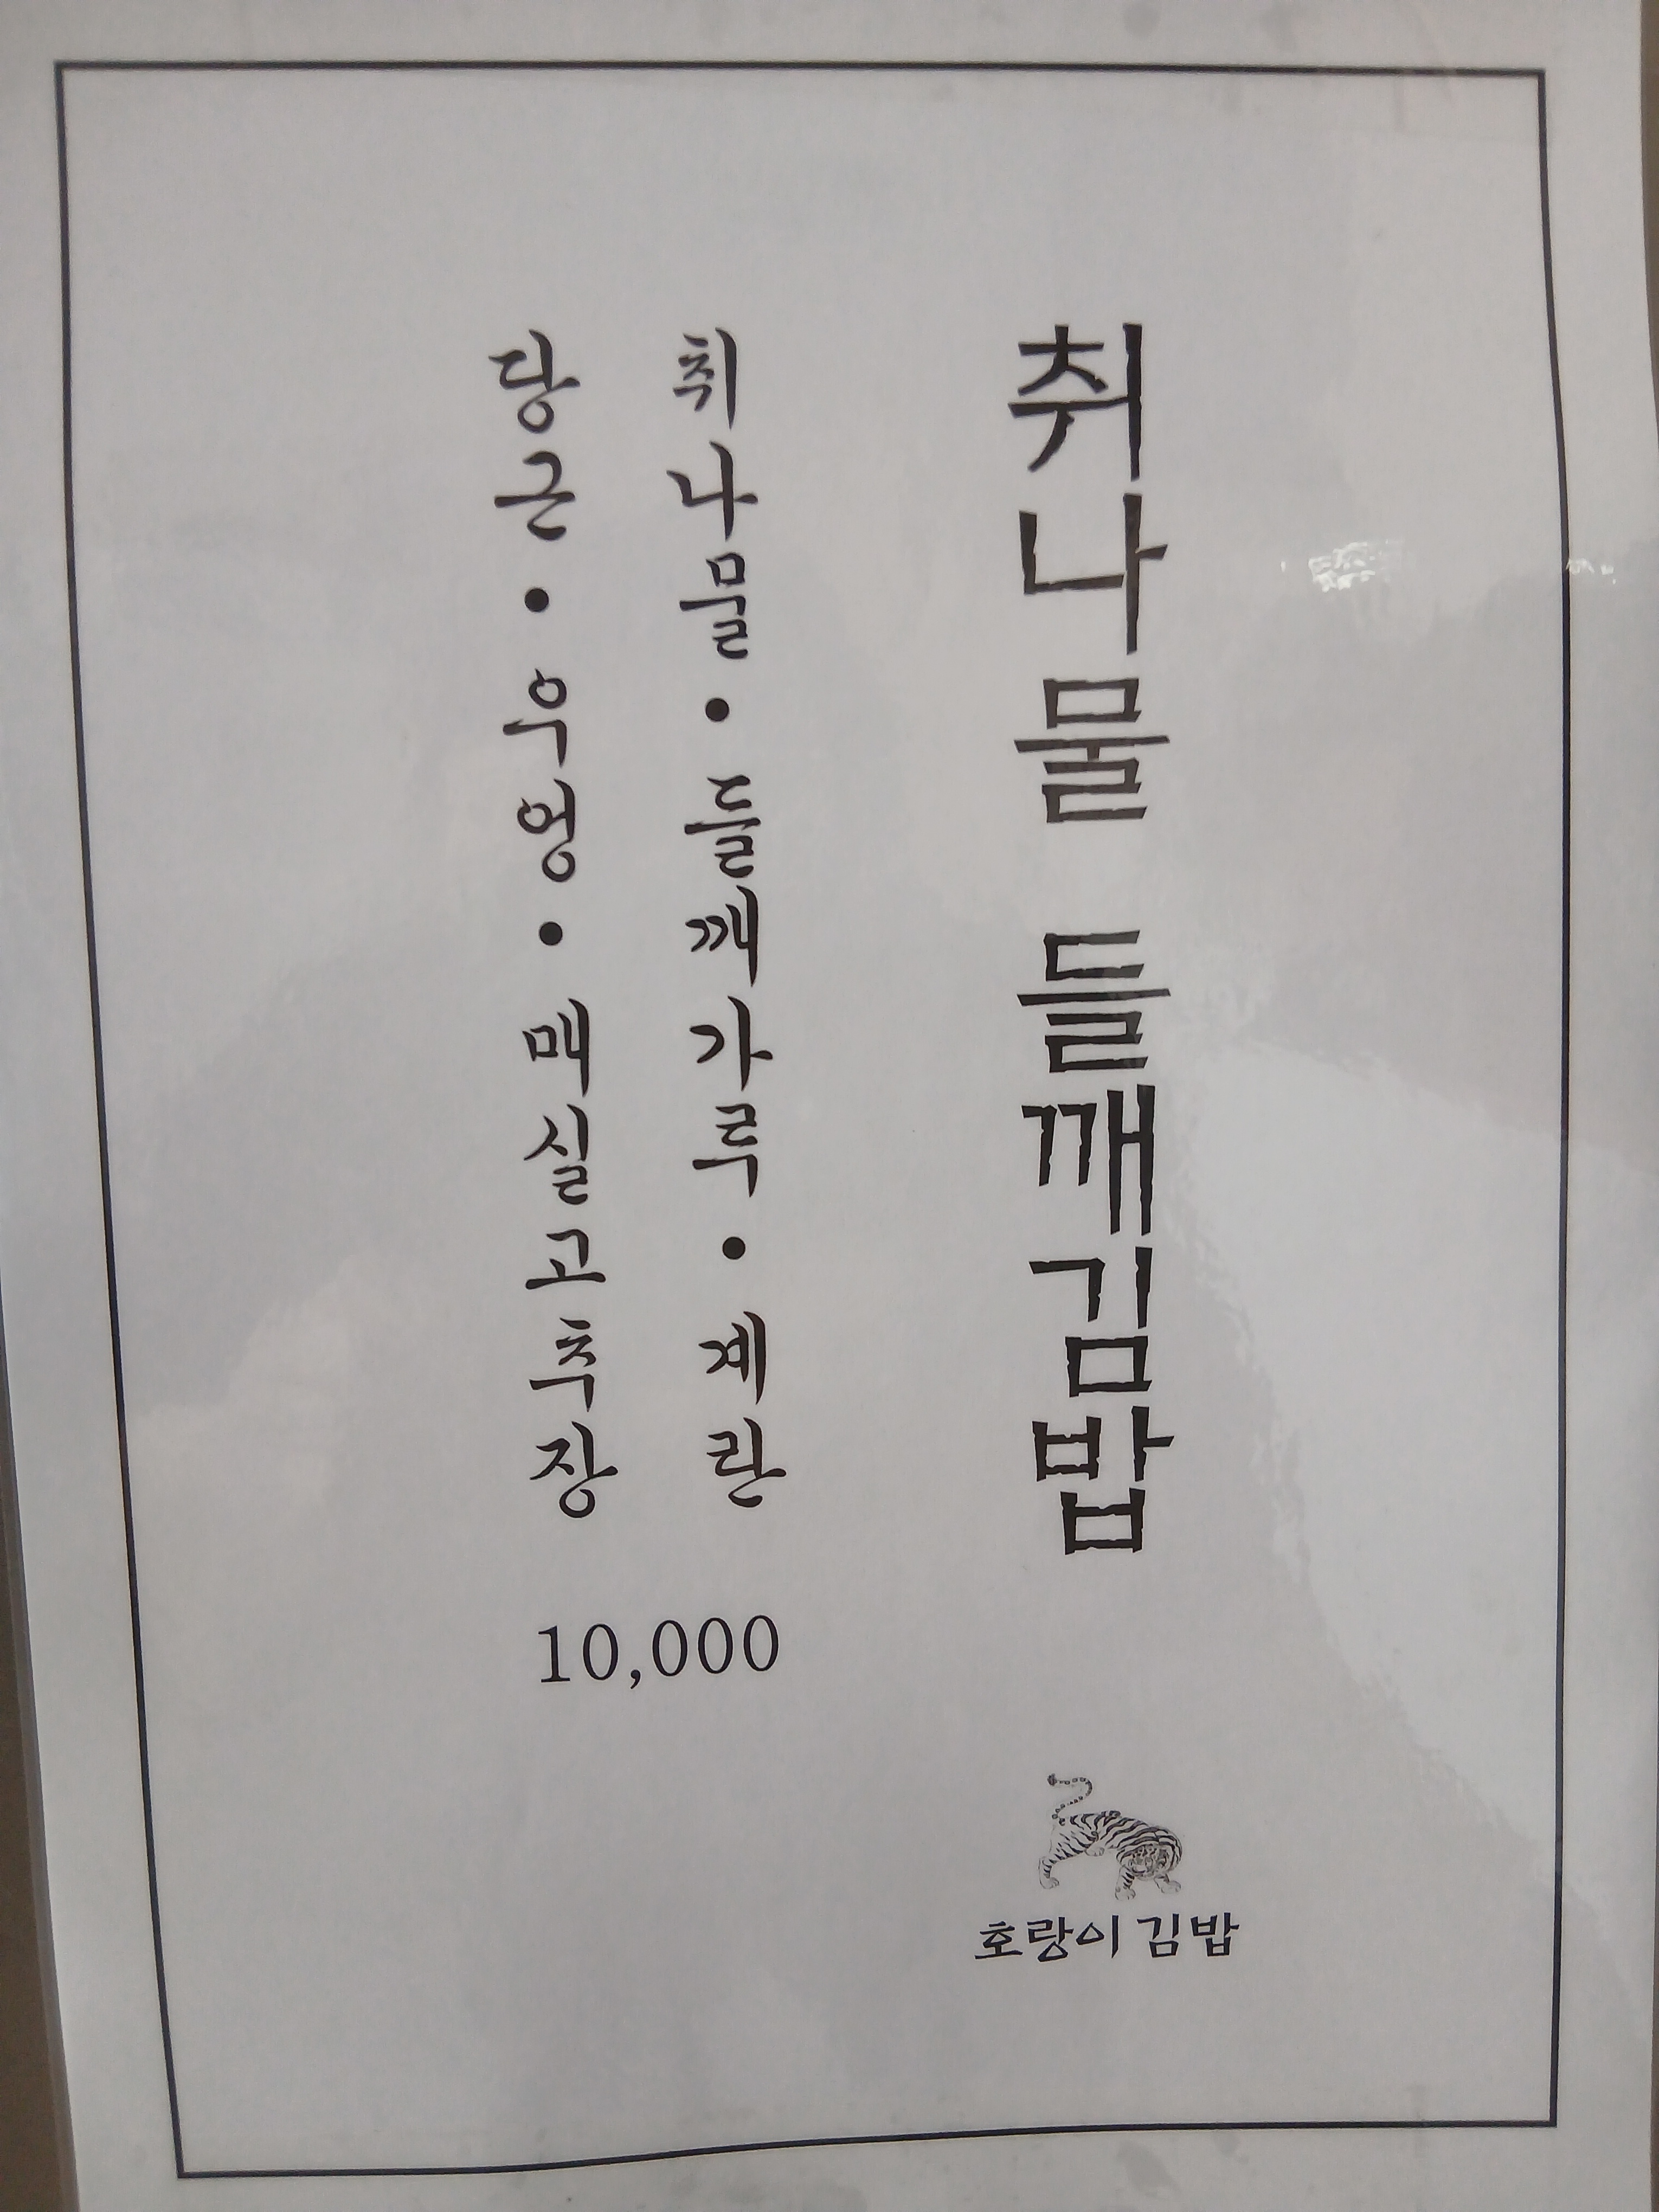 취나물 들깨김밥
취나물 • 들깨가루 • 계란
당근 • 우엉 • 매실고추장
10,000
호랑이 김밥